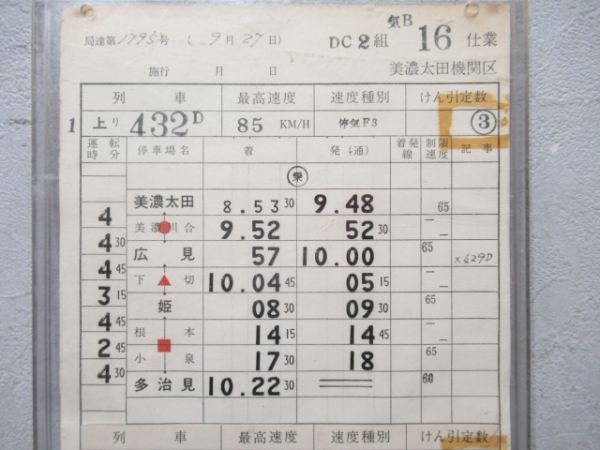 局達第1795号 ( 9月27日) DC2組 気B 16 仕業
施行 月 日 美濃太田機関区
列車 最高速度 速度種別 けん引定数
1 上り 432D 85 KM/H 停気F3 ③
運転時分 停車場名 着 発(通) 着発線 制限速度 記事
乗
美濃太田 8.53 30 9.48 65
4
美濃川合 9.52 52 30
4 30
広見 57 10.00 65 ×629D
4 45
下切 10.04 45 05 15
3 15
姫 08 30 09 30 65
4 45
根本 14 15 14 45
2 45
小泉 17 30 18 65
4 30
多治見 10.22 30 60
列車 最高速度 速度種別 けん引定数